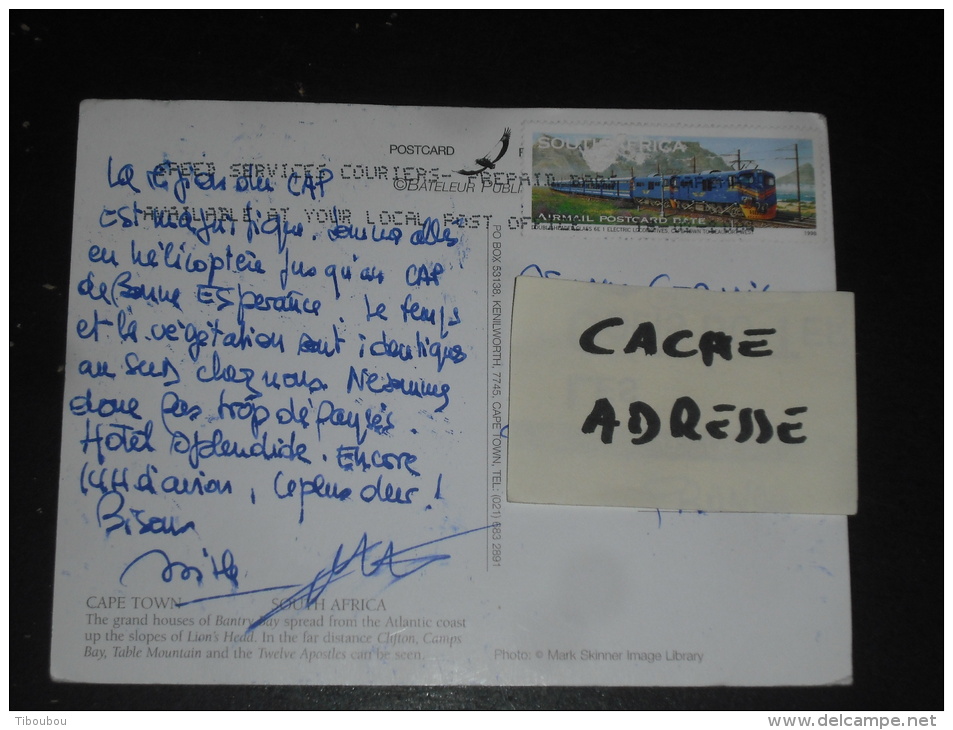 POSTCARD
SPEED SERVICES COURIERS- PREPAID
©BATELEUR PUBLI
AVAILABLE AT YOUR LOCAL POST OFFICE
SOUTH AFRICA
AIRMAIL POSTCARD RATE
1998
La région du CAP
est magnifique. Somme allés
en hélicoptère jusqu'au CAP
de Bonne Espérance. Le temps
et la végétation sont identiques
au Sud chez nous. N'Sommes
donc pas trop dépaysés.
Hôtel splendide. Encore
14H d'avion, le plus dur!
Bisous
PO BOX 53138, KENILWORTH, 7745, CAPE TOWN, TEL: (021) 683 2891
CACHE
ADRESSE
CAPE TOWN SOUTH AFRICA
The grand houses of Bantry Bay spread from the Atlantic coast
up the slopes of Lion's Head. In the far distance Clifton, Camps
Bay, Table Mountain and the Twelve Apostles can be seen.
Photo: © Mark Skinner Image Library
Tiboubou
delcampe.net